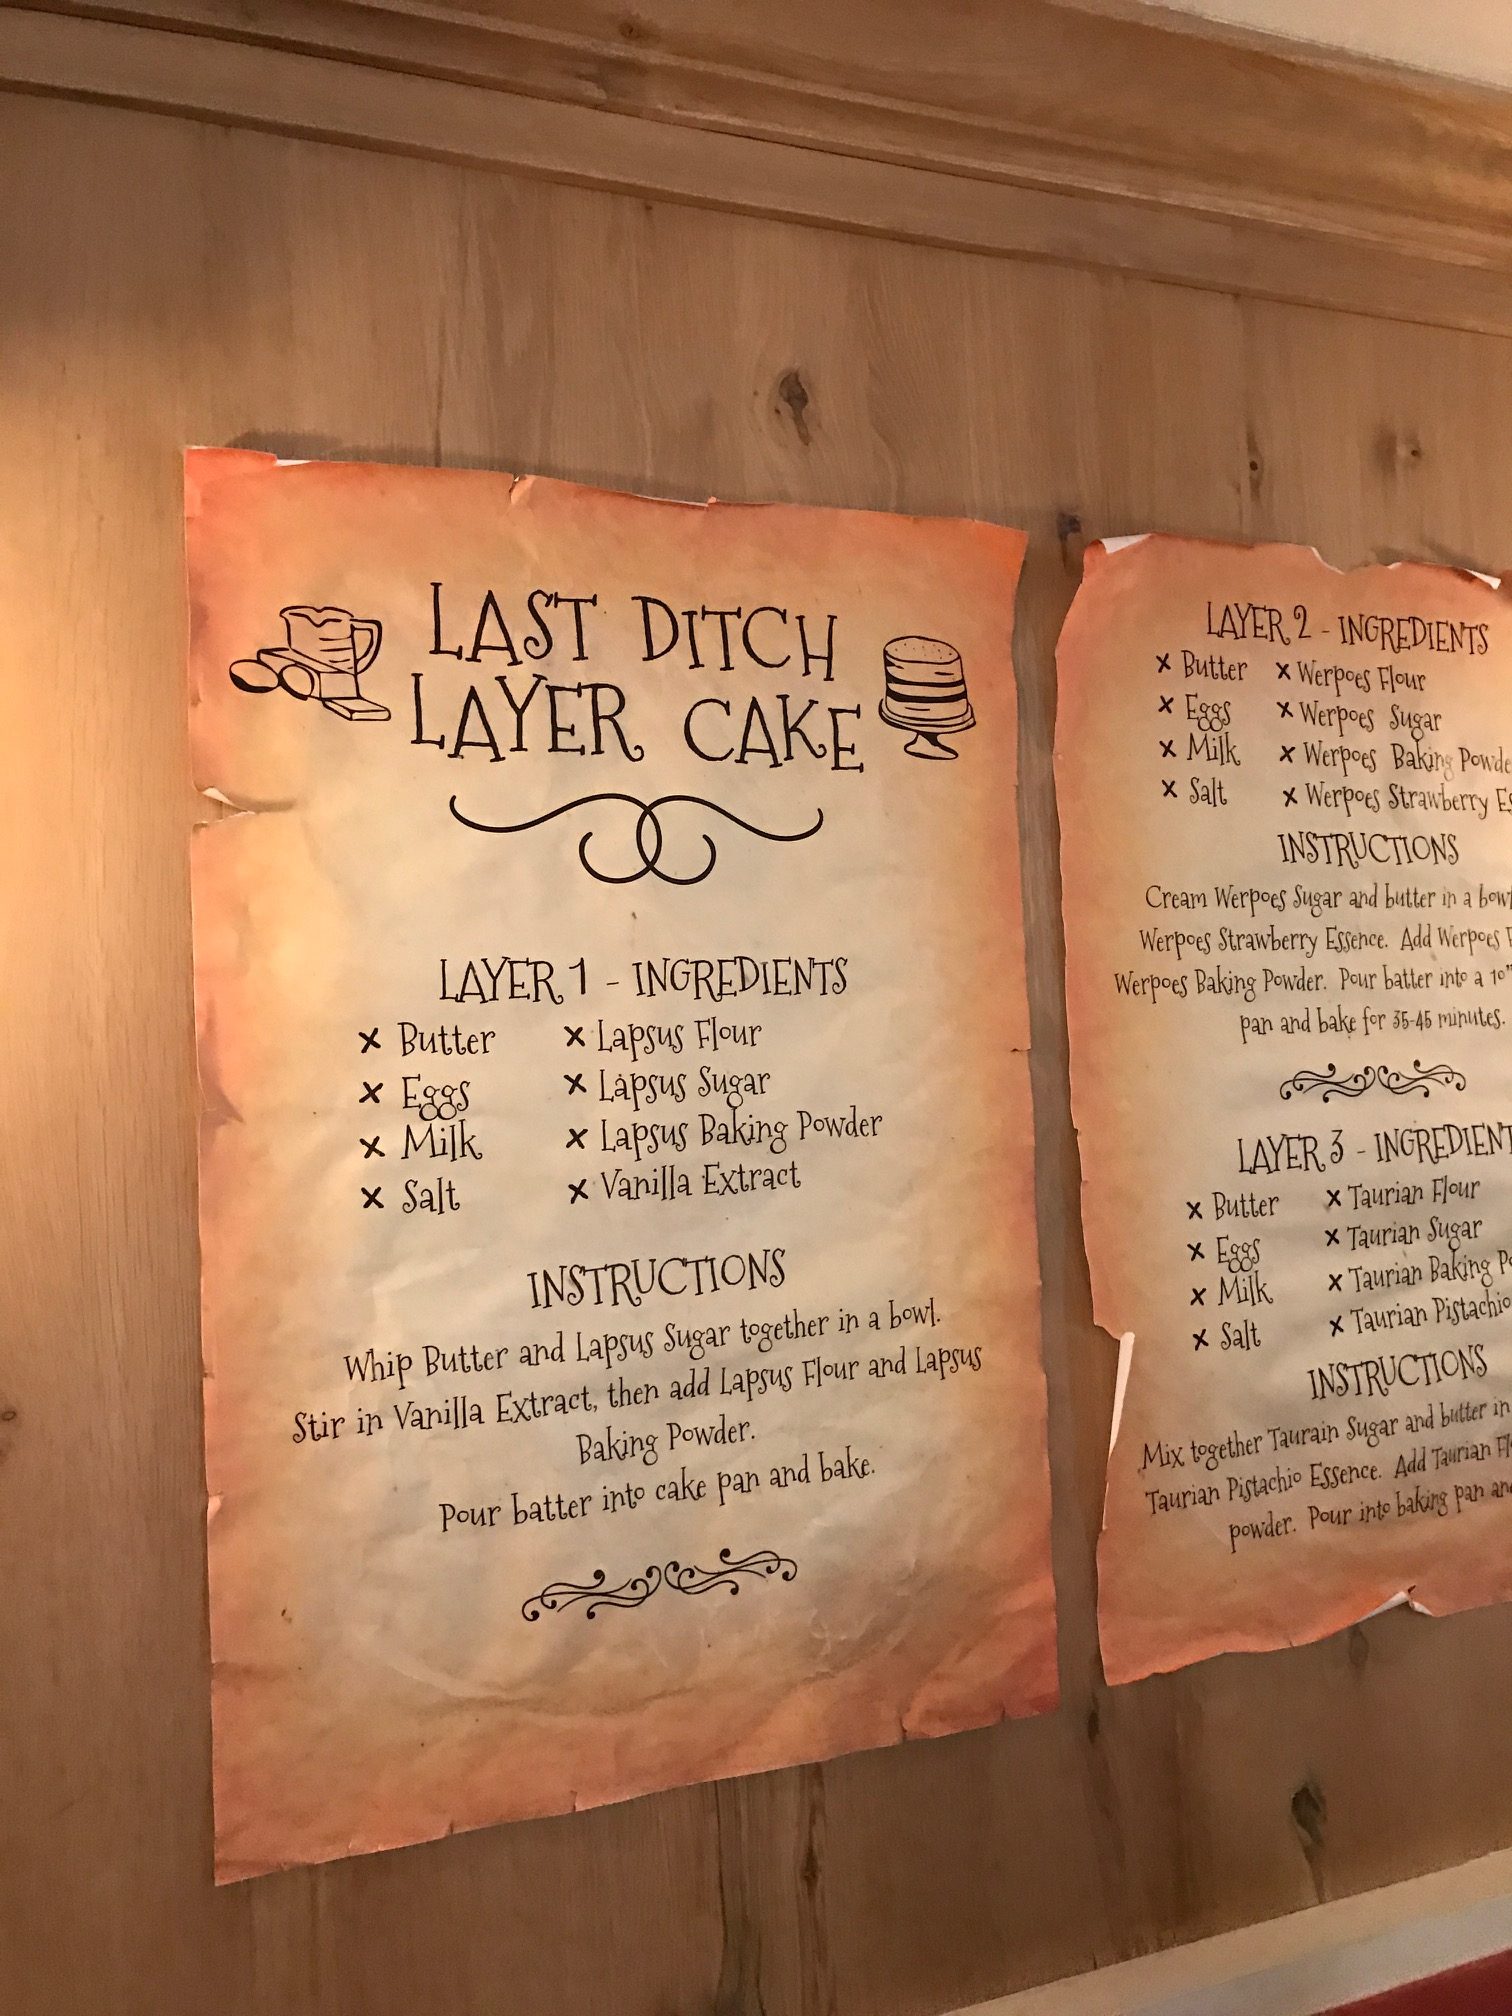 LAST DITCH
LAYER CAKE
LAYER 1 - INGREDIENTS
x Butter x Lapsus Flour
x Eggs x Lapsus Sugar
x Milk x Lapsus Baking Powder
x Salt x Vanilla Extract
INSTRUCTIONS
Whip Butter and Lapsus Sugar together in a bowl.
Stir in Vanilla Extract, then add Lapsus Flour and Lapsus
Baking Powder.
Pour batter into cake pan and bake.
LAYER 2 - INGREDIENTS
x Butter x Werpoes Flour
x Eggs x Werpoes Sugar
x Milk x Werpoes Baking
x Salt x Werpoes Strawberry
INSTRUCTIONS
Cream Werpoes Sugar and butter in a
Werpoes Strawberry Essence. Add Werpoes
Werpoes Baking Powder. Pour batter into a 10"
pan and bake for 35-45 minutes.
LAYER 3 -
x Butter x Taurian Flour
x Eggs x Taurian Sugar
x Milk x Taurian Baking
x Salt x Taurian Pistachio
INSTRUCTIONS
Mix together Taurain Sugar and butter in
Taurian Pistachio Essence. Add Taurian
powder. Pour into baking pan